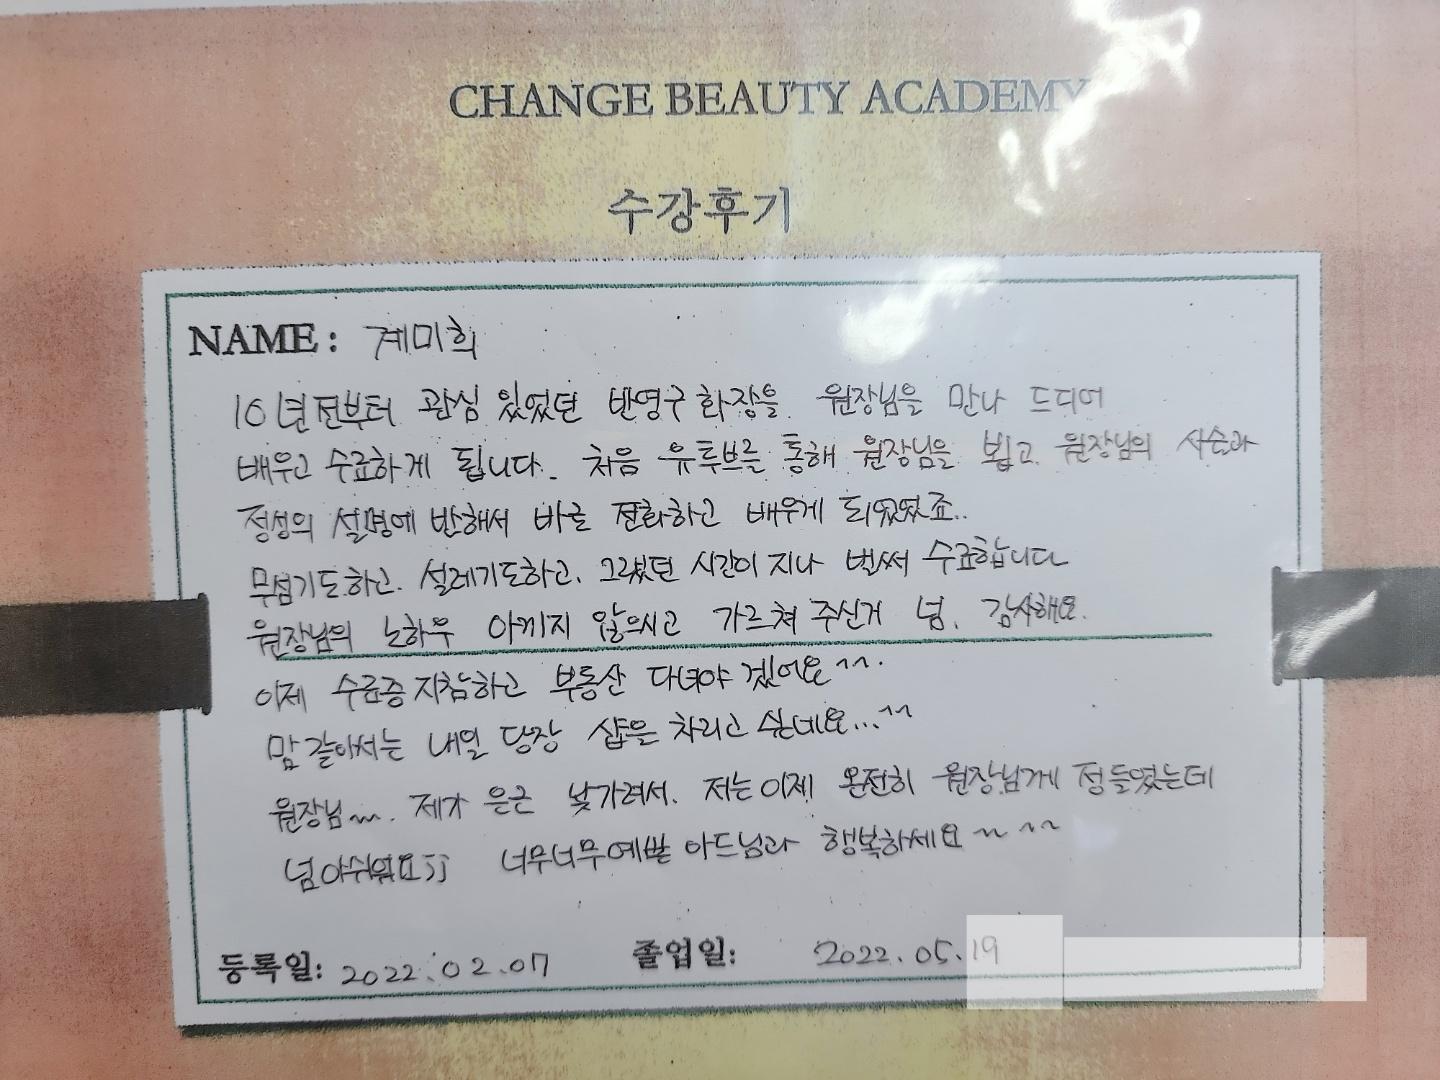 CHANGE BEAUTY ACADEMY
수강후기
NAME : 계미희
10년전부터 관심 있었던 반영구 화장을. 원장님을 만나 드디어
배우고 수료하게 됩니다. 처음 유투브를 통해 원장님을 뵙고 원장님의 사슨과
정성의 설명에 반해서 바로 전화하고 배우게 되었었죠..
무섭기도하고. 설레기도하고. 그랬던 시간이 지나 벌써 수료합니다
원장님의 노하우 아끼지 않으시고 가르쳐 주신거 넘. 감사해요.
이제 수료증 지참하고 부동산 다녀야 겠어요^^.
맘 같아서는 내일 당장 샵을 차리고 싶네요...^^
원장님~~. 제가 은근 낯가려서. 저는 이제 온전히 원장님께 정들였는데
넘 아쉬워요;; 너무너무 예쁜 아드님과 행복하세요~ ^^
등록일: 2022.02.07 졸업일: 2022.05.19